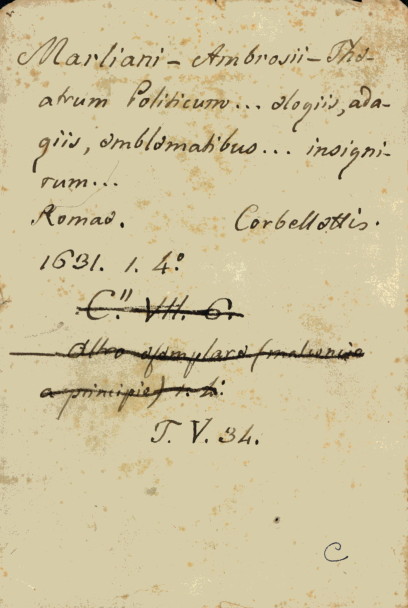 Marliani - Ambrosii - The-
atrum Politicum... elogiis, ada-
giis, emblematibus... insigni-
tum...
Romae. Corbellettis.
1631. 1. 4.º
C." VII. 6.
Altro esemplare (mancante
a principio) 1. 4.º
T. V. 34.
C